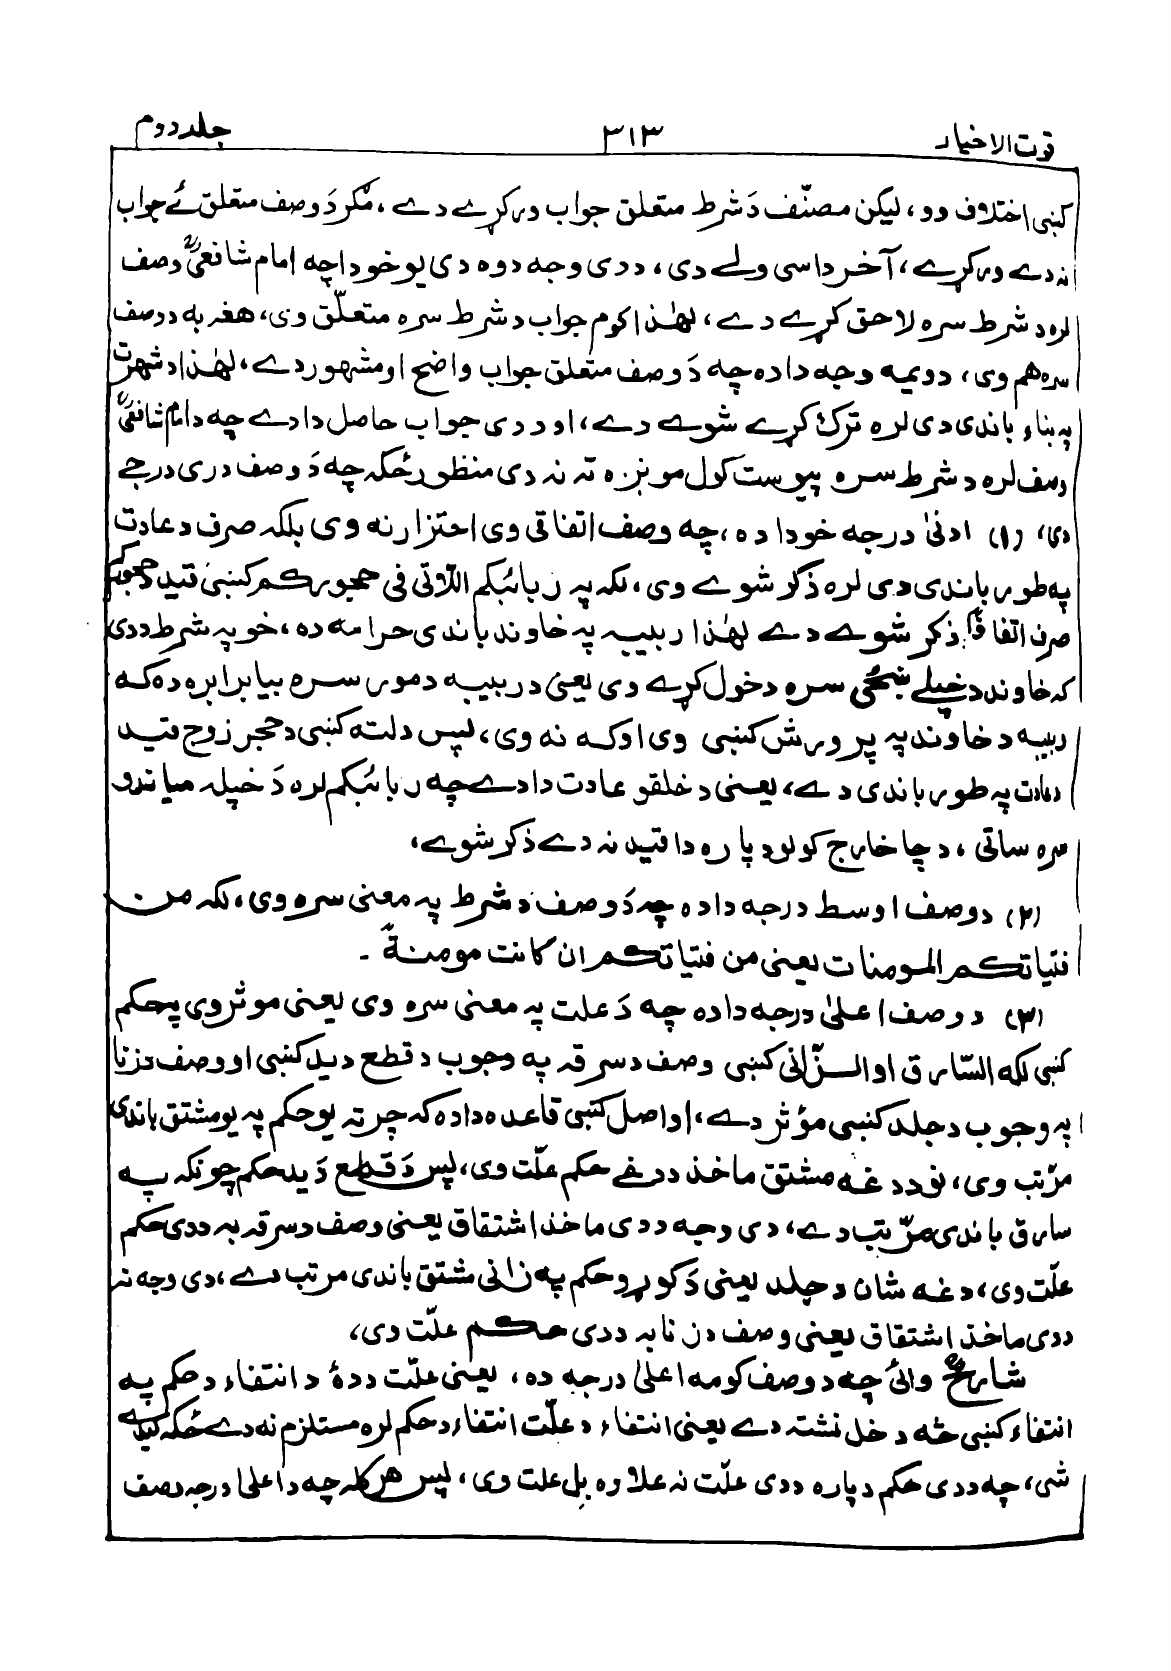 قوت الاخیار ۳۱۳ جلد دوم
کښی اختلاف وو، لیکن مصنّف دَ شرط متعلق جواب ورکړے دے، مګر دَ وصف متعلق ئے جواب
نه دے ورکړے، آخر داسی ولے دی، ددی وجه دوه دی یو خو دا چه امام شافعیؒ وصف
لره د شرط سره لاحق کړے دے، لهٰذا کوم جواب د شرط سره متعلّق وی، هغه به د وصف
سره هم وی، دویمه وجه داده چه دَ وصف متعلق جواب واضح او مشهور دے، لهٰذا د شهرت
په بناء باندی دی لره ترک کړے شوے دے، او ددی جواب حاصل دا دے چه د امام شافعیؒ
وصف لره د شرط سره پیوست کول مونږه ته نه دی منظور ځکه چه دَ وصف دری درجے
دی، (۱) ادنیٰ درجه خو دا ده، چه وصف اتفاقی وی احتراز نه وی بلکه صرف د عادت
په طور باندی دی لره ذکر شوے وی، لکه په ربائبکم اللاتی فی حجورکم کښی قید د حجورکم
صرف اتفاقًا ذکر شوے دے لهٰذا ربیبه په خاوند باندی حرامه ده، خو په شرط ددی
که خاوند د خپلے ښځی سره دخول کړے وی یعنی د ربیبه د مور سره بیا برابره ده که
ربیبه د خاوند په پرورش کښی وی او که نه وی، لپس دلته کښی د حجر زوج قید
د عادت په طور باندی دے، یعنی د خلقو عادت دا دے چه ربائبکم لره دَ خپله میاندو
سره ساتی، د چا خارج کولو د پاره دا قید نه دے ذکر شوے،
(۲) د وصف اوسط درجه داده چه دَ وصف د شرط په معنی سره وی، لکه من
فتیاتکم المومنات یعنی من فتیاتکم ان کانت مومنةً ۔
(۳) د وصف اعلیٰ درجه داده چه دَ علت په معنی سره وی یعنی موثر وی په حکم
کښی لکه السّارق او الزّانی کښی وصف د سرقه په وجوب د قطع دید کښی او وصف د زنا
په وجوب د جلد کښی مؤثر دے، او اصل کښی قاعده داده که چرته یو حکم په یو مشتق باندی
مرّتب وی، نو د دغه مشتق ماخذ د دغے حکم علّت وی، پس دَ قطع دَ ید حکم چونکه په
سارق باندی مرّتب دے، دی وجه ددی ماخذ اشتقاق یعنی وصف د سرقه به ددی حکم
علّت وی، دغه شان د جلد یعنی دَ کوړو حکم په زانی مشتق باندی مرتب دے، دی وجه نه
ددی ماخذ اشتقاق یعنی وصف د زنا به ددی حکم علّت دی،
شارحؒ وائی چه د وصف کومه اعلیٰ درجه ده، یعنی علّت ددهٔ د انتفاء د حکم په
انتفاء کښی څه دخل نشته دے یعنی انتفاء د علّت انتفاء د حکم لره مستلزم نه دے ځکه کیدے
شی، چه ددی حکم د پاره ددی علّت نه علاوه بل علت وی، پس هر کله چه د اعلیٰ درجه وصف